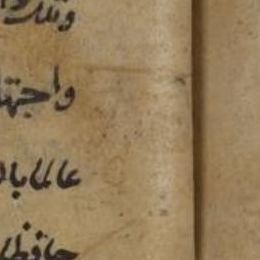 وتلك
واجتها
عالما با
حافظا